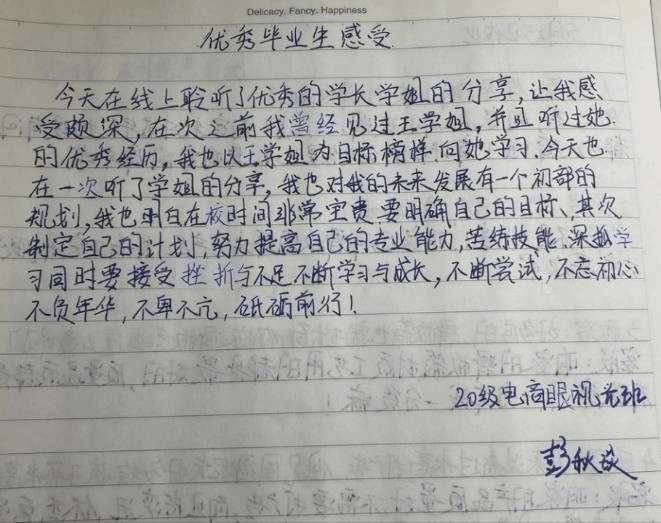 Delicacy. Fancy. Happiness
优秀毕业生感受
今天在线上聆听了优秀的学长学姐的分享,让我感
受颇深,在次之前我曾经见过王学姐,并且听过她
的优秀经历,我也以王学姐为目标榜样向她学习.今天也
在一次听了学姐的分享,我也对我的未来发展有一个初部的
规划,我也明白在校时间非常宝贵要明确自己的目标、其次
制定自己的计划,努力提高自己的专业能力,苦练技能、深抓学
习同时要接受挫折与不足不断学习与成长,不断尝试,不忘初心
不负年华,不卑不亢,砥砺前行!
20级电商眼视光班
彭秋